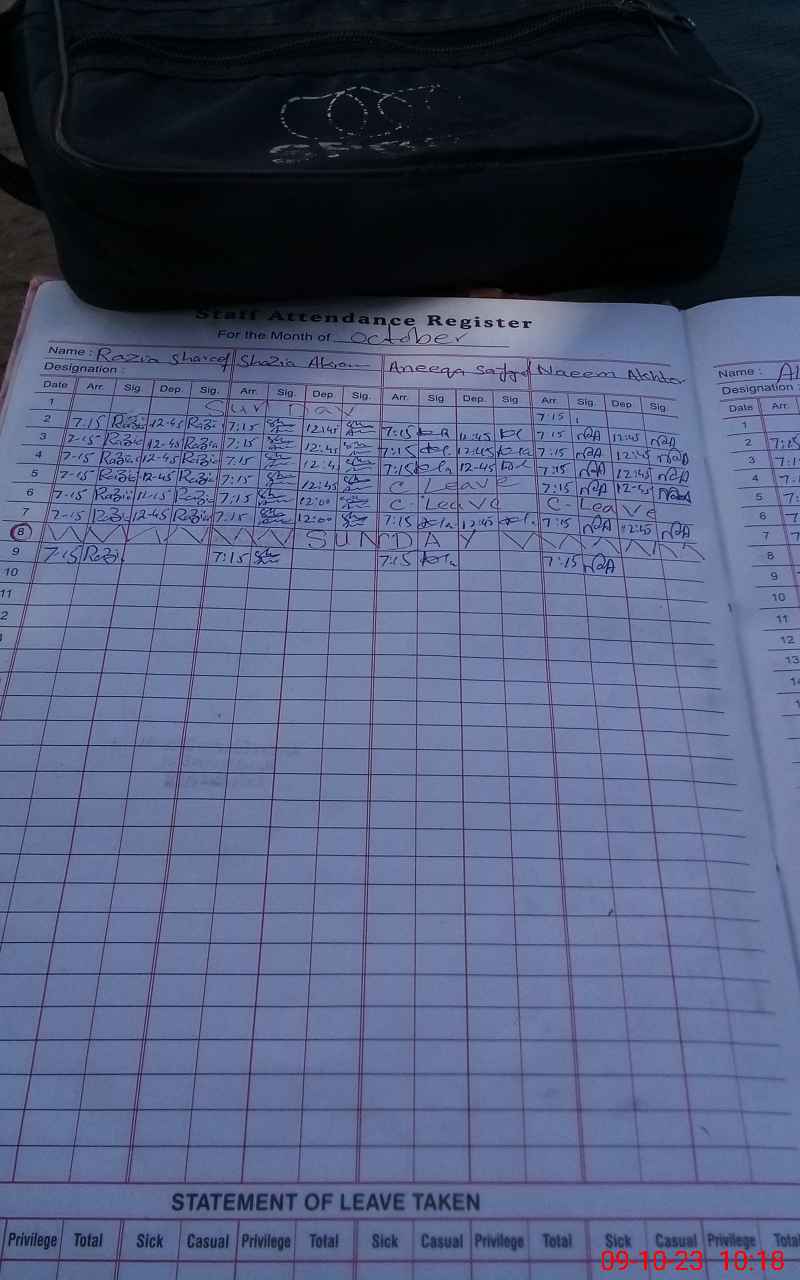 Staff Attendance Register
For the Month of October
Name : Razia Shareef Shazia Akram Aneeqa Sajjad Naeem Akhtar Name :
Designation : Designation :
Date Arr. Sig Dep. Sig. Arr. Sig. Dep Sig. Arr. Sig Dep. Sig. Arr. Sig. Dep Sig. Date Arr.
1 Sunday 7:15 1
2 7:15 Razia 12-45 Razia 7:15 12:45 7:15 12:45 7:15 12:45 2
3 7-15 Razia 12-45 Razia 7:15 12:45 7:15 12:45 7:15 12:45 3
4 7-15 Razia 12-45 Razia 7:15 12:4 7:15 12-45 7:15 12:45 4
5 7-15 Razia 12-45 Razia 7:15 12:45 C. Leave 7:15 12-45 5
6 7-15 Razia 11-15 Razia 7:15 12:00 C. Leave C- Leave 6
7 7-15 Razia 12-45 Razia 7:15 12:00 7:15 12:45 7:15 12:45 7
8 SUNDAY 8
9 7-15 Razia 7:15 7:15 7:15 9
10 10
11 11
2 12
13
STATEMENT OF LEAVE TAKEN
Privilege Total Sick Casual Privilege Total Sick Casual Privilege Total Sick Casual Privilege Total
09-10-23 10:18